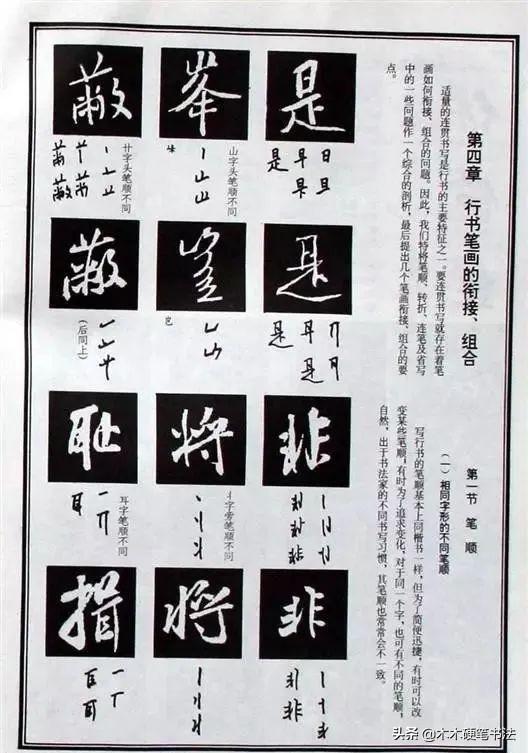 第四章 行书笔画的衔接、组合
适量的连贯书写是行书的主要特征之一。要连贯书写就存在着笔
画如何衔接、组合的问题。因此，我们特将笔顺、转折、连笔及省写
中的一些问题作一个综合的剖析，最后提出几个笔画衔接、组合的要
点。
第一节 笔顺
(一) 相同字形的不同笔顺
写行书的笔顺基本上同楷书一样，但为了简便迅捷，有时可以改
变某些笔顺，有时为了追求变化，对于同一个字，也可有不同的笔顺，
自然，出于书法家的不同书写习惯，其笔顺也常常会不一致。
是
是
非
非
峯
山字头笔顺不同
将
丬字旁笔顺不同
将
蔽
廾字头笔顺不同
蔽
(后同上)
耻
耳字笔顺不同
揖
头条 @木木硬笔书法